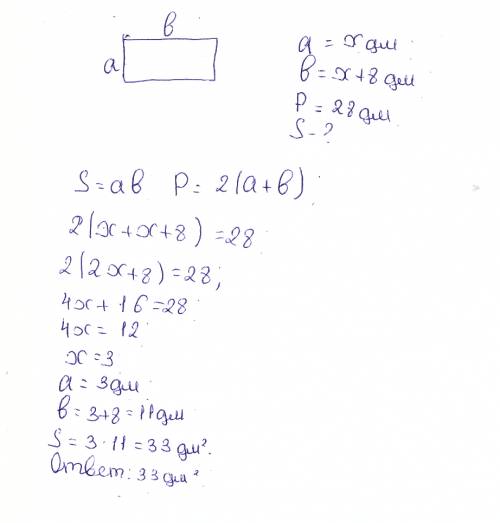 в
а
а = x дм
в = x+8 дм
P = 28 дм
S - ?
S = ab P = 2(a+b);
2(x+x+8) = 28
2(2x+8) = 28;
4x + 16 = 28
4x = 12
x = 3
а = 3 дм
в = 3+8 = 11 дм
S = 3 · 11 = 33 дм².
Ответ: 33 дм²